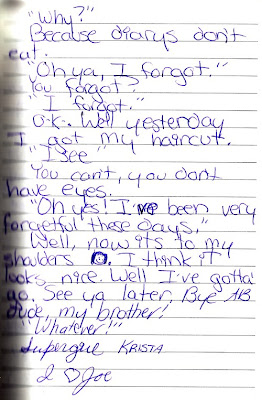 "Why?"
Because diarys don't
eat.
"Oh ya, I forgot."
You forgot?
"I forgot."
O.k. Well yesterday
I got my haircut.
"I see"
You can't, you dont
have eyes.
"Oh yes! I've been very
forgetful these days."
Well, now its to my
shoulders. I think it
looks nice. Well I've gotta
go. See ya later, Bye AB
dude, my brother!
"Whatever!"
KRISTA
I ♡ Joe